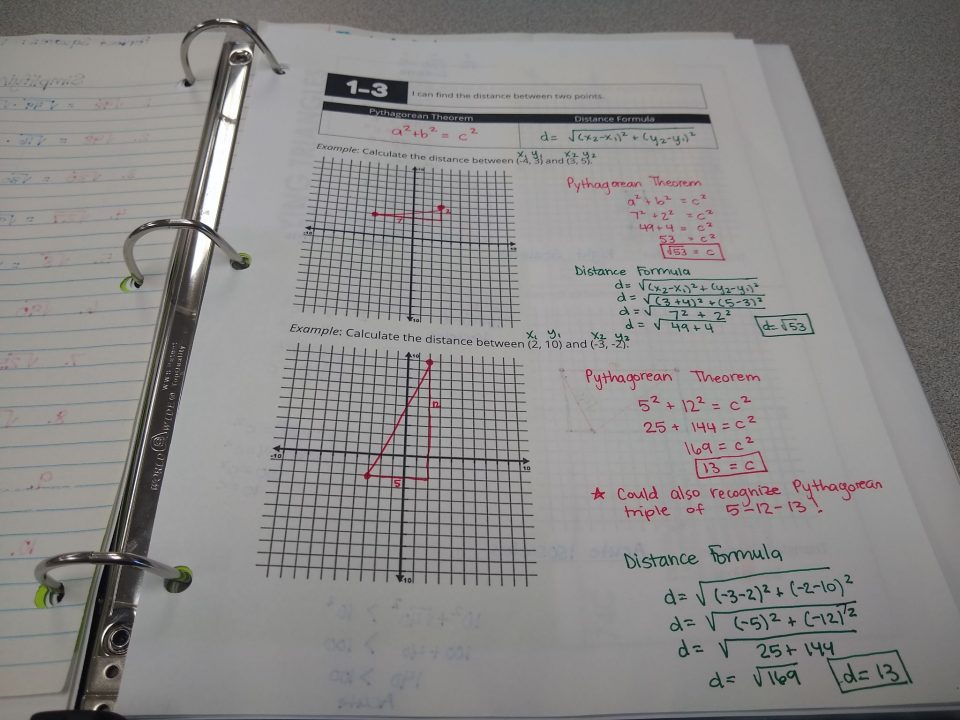 1-3
I can find the distance between two points.
Pythagorean Theorem
Distance Formula
a² + b² = c²
d = √(x₂-x₁)² + (y₂-y₁)²
x₁ y₁ x₂ y₂
Example: Calculate the distance between (-4, 3) and (3, 5).
10
-10
10
-10
7
2
Pythagorean Theorem
a² + b² = c²
7² + 2² = c²
49 + 4 = c²
53 = c²
√53 = c
Distance Formula
d = √(x₂-x₁)² + (y₂-y₁)²
d = √(3+4)² + (5-3)²
d = √7² + 2²
d = √49 + 4
d = √53
x₁ y₁ x₂ y₂
Example: Calculate the distance between (2, 10) and (-3, -2).
10
-10
10
-10
12
5
Pythagorean Theorem
5² + 12² = c²
25 + 144 = c²
169 = c²
13 = c
★ Could also recognize Pythagorean
triple of 5-12-13!
Distance Formula
d = √(-3-2)² + (-2-10)²
d = √(-5)² + (-12)²
d = √25 + 144
d = √169
d = 13